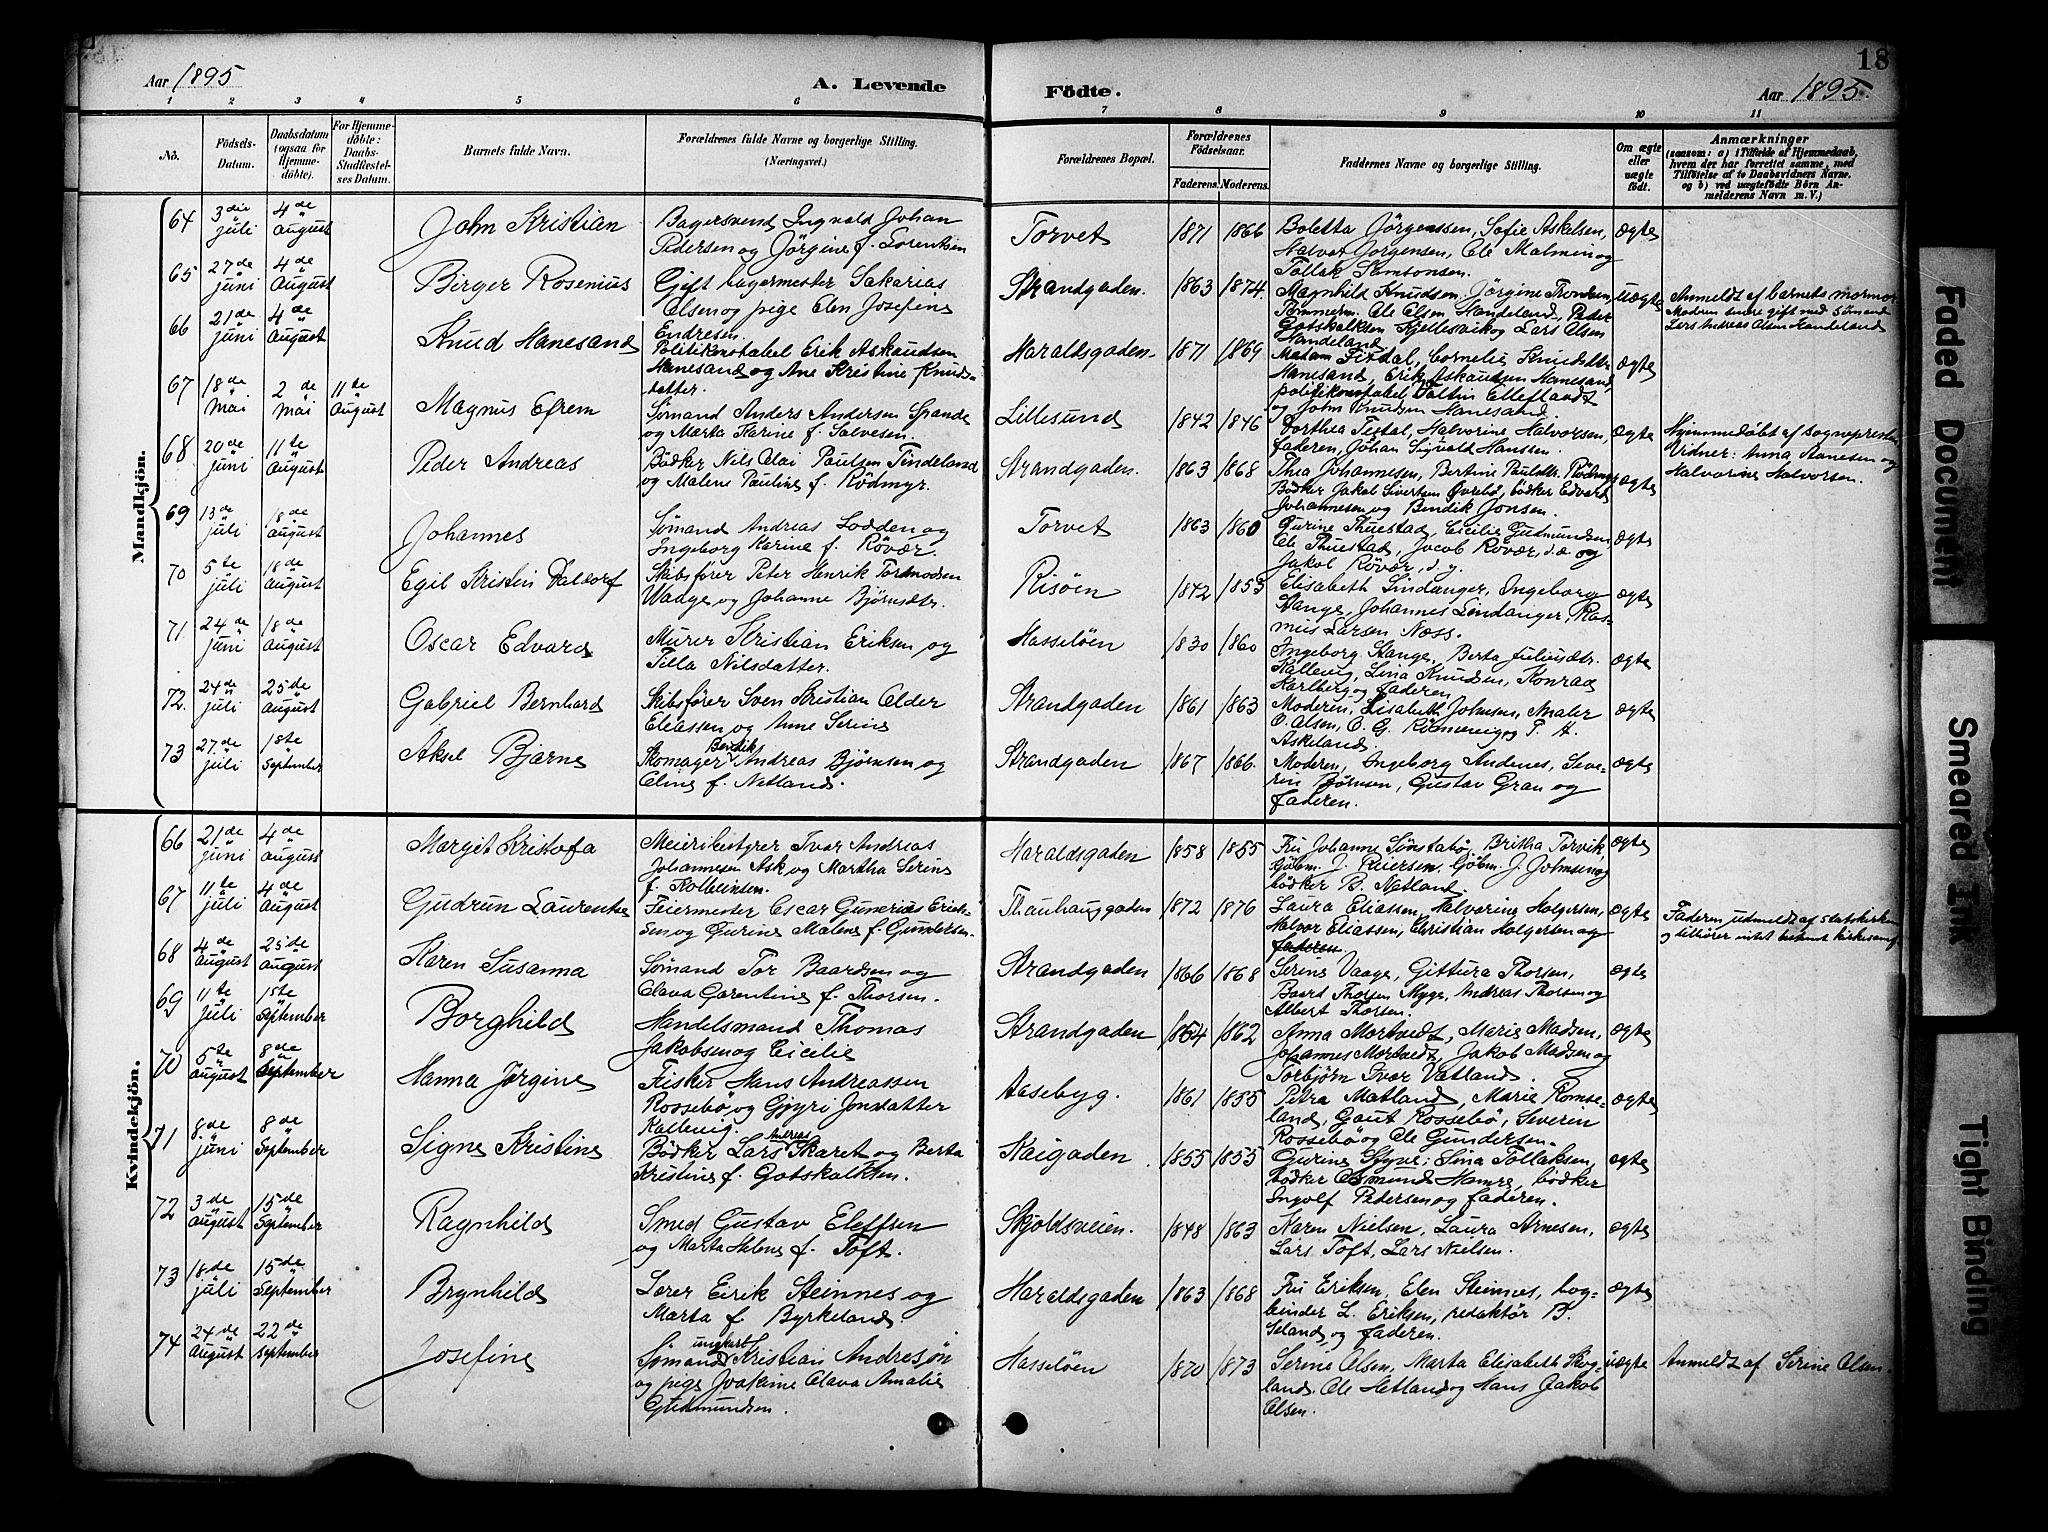 18
Aar 1895
A. Levende
Födte.
Aar 1895.
1 2 3 4 5 6 7 8 9 10 11
No.
Födsels-Datum.
Daabsdatum (ogsaa for Hjemmedöbte).
For Hjemmedöbte: Daabs-Stadfæstelses Datum.
Barnets fulde Navn.
Forældrenes fulde Navne og borgerlige Stilling. (Næringsvei.)
Forældrenes Bopæl.
Forældrenes Födselsaar.
Faderens. Moderens.
Faddernes Navne og borgerlige Stilling.
Om ægte eller uægte födt.
Anmærkninger
(saasom: a) i Tilfælde af Hjemmedaab, hvem der har forrettet samme, med Tilföielse af to Daabsvidners Navne, og b) ved uægtefödte Börn Anmelderens Navn m. V.)
Mandkjön.
64 3die juli 4de august John Kristian Bagersvend Ingvald Johan Pedersen og Jörgine f. Lorentsen Torvet 1871 1866 Boletta Jörgenssen, Sofie Askelsen, Halvor Jörgensen, Ole Malmin og Tollak Samsonsen. ægte
65 27de juni 4de august Birger Rosenius Gift bagermester Sakarias Olsen og pige Elen Josefine Endresen. Strandgaden. 1863 1874. Magnhild Knudsen, Jörgine Trondsen, Tömmerm. Ole Olsen Handeland, Peder Gotskalksen Kjellesvik og Lars Olsen Handeland uægte Anmeldt af barnets mormor. Modren senere gift med Sömand Lars Andreas Olsen Handeland
66 21de juni 4de august Knud Hanesand Politikonstabel Erik Askaudsen Hanesand og Ane Kristine Knudsdatter. Haraldsgaden. 1871 1869 Madam Fixdal, Cornelie Knudsdtr. Hanesand, Erik Askautsen Hanesand, politikonstabel Valtin Elleflaadt og John Knudsen Hanesand. ægte
67 18de mai 2de mai 11te august Magnus Efrem Sömand Anders Andersen Spande og Marta Karine f. Salvesen. Lillesund 1842 1846 Dorthea Fixdal, Halvorine Halvorsen, faderen, Johan Sigvald Hanssen. ægte Hjemmedöbt af sognepresten Vidner: Anna Aanesen og Halvorine Halvorsen.
68 20de juni 11te august Peder Andreas Bödker Nils Olai Paulsen Tindeland og Malene Pauline f. Rödmyr. Strandgaden. 1863 1868 Thea Johannesen, Bertine Paulsdtr. Rödmyr, Bödker Jakob Sivertsen Övrebö, bödker Edvard Johannesen og Bendik Jonsen. ægte
69 13de juli 18de august Johannes Sömand Andreas Lodden og Ingeborg Karine f. Rövær. Torvet 1863 1860 Gurine Thuestad, Cicilie Gudmundsen, Ole Thuestad, Jacob Rövær, d. æ og Jakob Rövær, d. y. ægte
70 5te juli 18de august Egil Kristin Valdorf Skibsförer Peter Henrik Tormodsen Waage og Johanne Björnsdtr. Risöen 1842 1853 Elisabeth Lindanger, Ingeborg Stange, Johannes Lindanger, Rasmus Larsen Næss. ægte
71 24de juni 18de august Oscar Edvard Murer Kristian Eriksen og Pilla Nilsdatter. Hasselöen 1830 1860 Ingeborg Stange, Berta Juliusdtr. Kallevig, Lina Knudsen, Konrad Karlberg og faderen. ægte
72. 24de juli 25de august Gabriel Bernhard Skibsförer Sven Kristian Older Eliassen og Anne Serine Strandgaden 1861 1863 Moderen, Elisabeth Johnsen, Maler O. Olsen, O. G. Römnevig og P. H. Askeland. ægte
73 27de juli 18te September Aksel Bjarne Skomager Bendik Andreas Björnsen og Eline f. Natland. Strandgaden 1867 1866. Moderen, Ingeborg Andenes, Severin Björnsen, Gustav Gran og faderen. ægte
Kvindekjön.
66 21de juni 4de august Margit Kristofa Meieribestyrer Ivar Andreas Johannesen Ask og Martha Serine f. Kolbeinsen. Haraldsgaden 1858 1855 Fru Johanne Sönstabö, Britha Torvik, Kjöbm. J. Reiersen, Kjöbm. J. Johnsen og bödker B. Natland. ægte
67 11te juli 4de august Gudrun Laurentse Feiermester Oscar Gunerius Eriksen og Gurine Malene f. Gundersen. Thauhauggaden 1872 1876 Laura Eliassen, Halvorine Holgersen, Halvor Eliassen, Christian Holgersen og faderen. ægte Faderen udmeldt af statskirken og tilhörer intet bekjent kirkesamf.
68 4de august 25de august Karen Susanna Sömand Tor Baardsen og Olava Garentine f. Thorsen. Strandgaden 1866 1868 Serine Vaage, Gittura Thorsen, Baard Thorsen Myge, Andreas Thorsen og Albert Thorsen. ægte
69 11te juli 15te September Borghild Handelsmand Thomas Jakobsen og Cicilie Strandgaden 1854 1862 Anna Mortvedt, Marie Madsen, Johannes Mortvedt, Jakob Madsen og Torbjörn Ivar Vatland. ægte
70 5te august 8de September Hanna Jörgine Fisker Hans Andreassen Rossebö, og Gjyri Jonsdatter Kallevig. Aasebyg. 1861 1855 Petra Matland, Marie Romseland, Gaut Rossebö, Severin Rossebö og Ole Gundersen. ægte
71 8de juni 8de September Signe Kristine Bödker Lars Andreas Skaret og Berta Kristine f. Gotskalksen. Kaigaden 1855 1855 Gurine Styve, Lina Tollaksen, bödker Osmund Hamre, bödker Ingolf Pedersen og faderen. ægte
72 3de august 15de September Ragnhild Smed Gustav Eleffsen og Marta Helene f. Toft. Skjoldsveien. 1848 1863 Karen Nielsen, Laura Arnesen, Lars Toft, Lars Nielsen. ægte
73 18de juli 15de September Brynhild Lærer Eirik Steinnes og Marta f. Byrkeland. Haraldsgaden 1863 1868 Fru Eriksen, Elen Steinnes, bogbinder L. Eriksen, redaktör B. Seland, og faderen. ægte
74 24de august 22de September Josefine Sömand ungkarl Kristian Andresön og pige Joakine Olava Amalie Gudmundsen. Hasselöen 1870 1873 Serine Olsen, Marta Elisabeth Skogland, Ole Hetland og Hans Jakob Olsen. uægte Anmeldt af Serine Olsen
Faded Document
Smeared Ink
Tight Binding